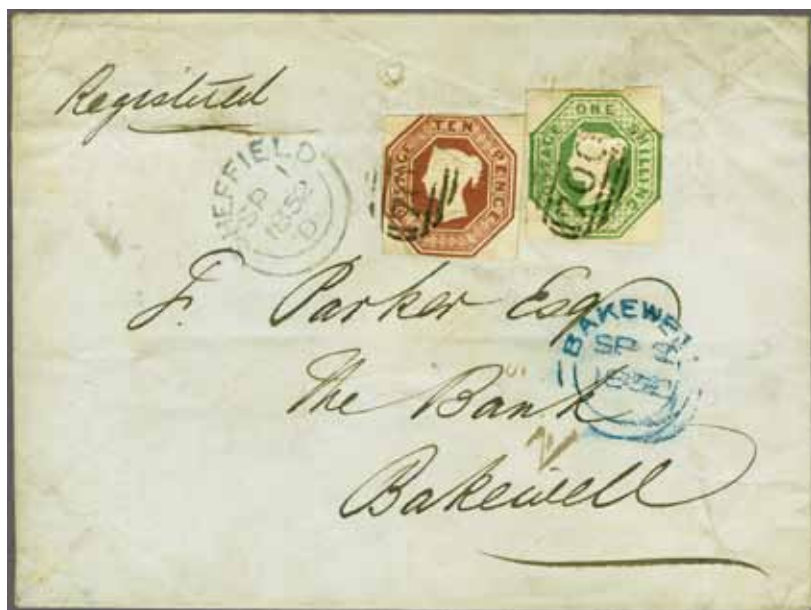 Registered
SHEFFIELD
SP 1
1852
D
POSTAGE TEN PENCE
POSTAGE ONE SHILLING
700
F. Parker Esq
The Bank
Bakewell
BAKEWELL
SP 2
1852